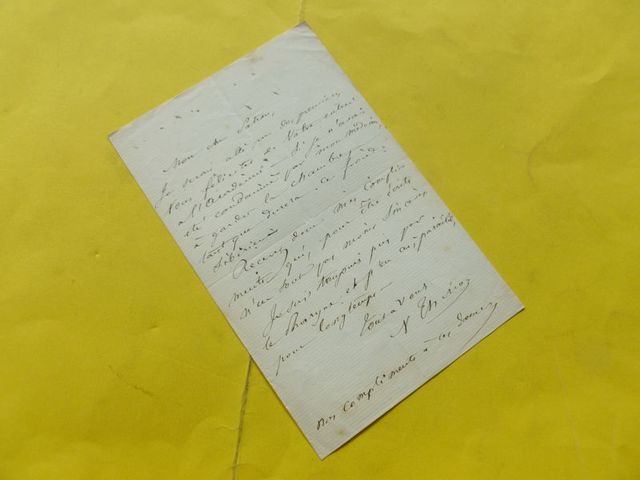 Mon cher Patin,
Je serais allé un des premiers
vous féliciter de votre entrée
à l'Académie si je n'avais
été condamné par mon médecin
à garder la chambre
tant que durera ce froid
sibérien
Recevez donc mes compli
ments qui, pour être écrits
n'en sont pas moins sincères
Je suis toujours pris par
le larynx et j'en ai, paraît-il,
pour longtemps
Tout à vous
N
Mes compliments à ces dames